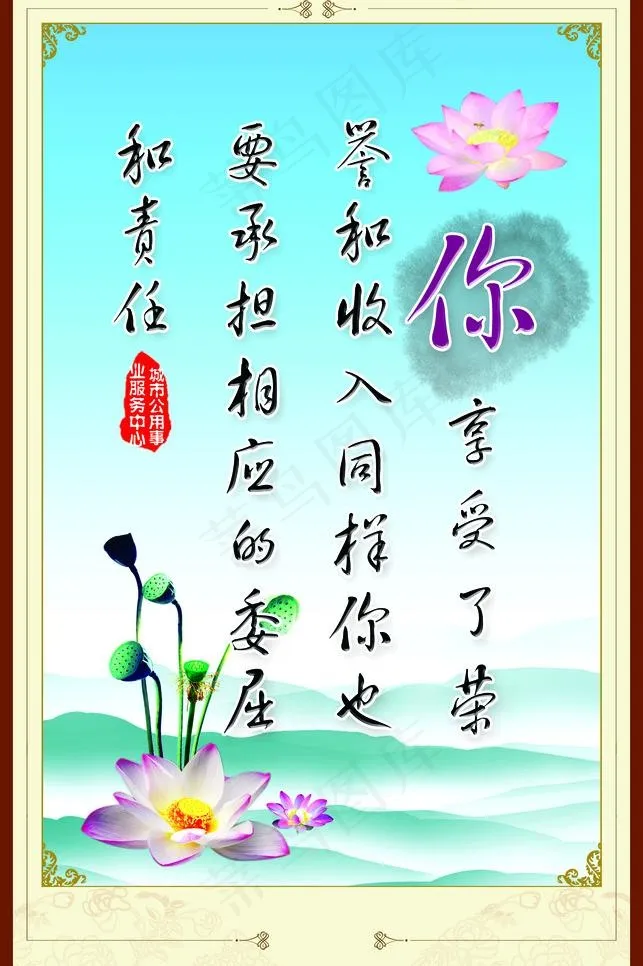 你享受了荣
誉和收入同样你也
要承担相应的委屈
和责任
城市公用事
业服务中心
菜鸟图库